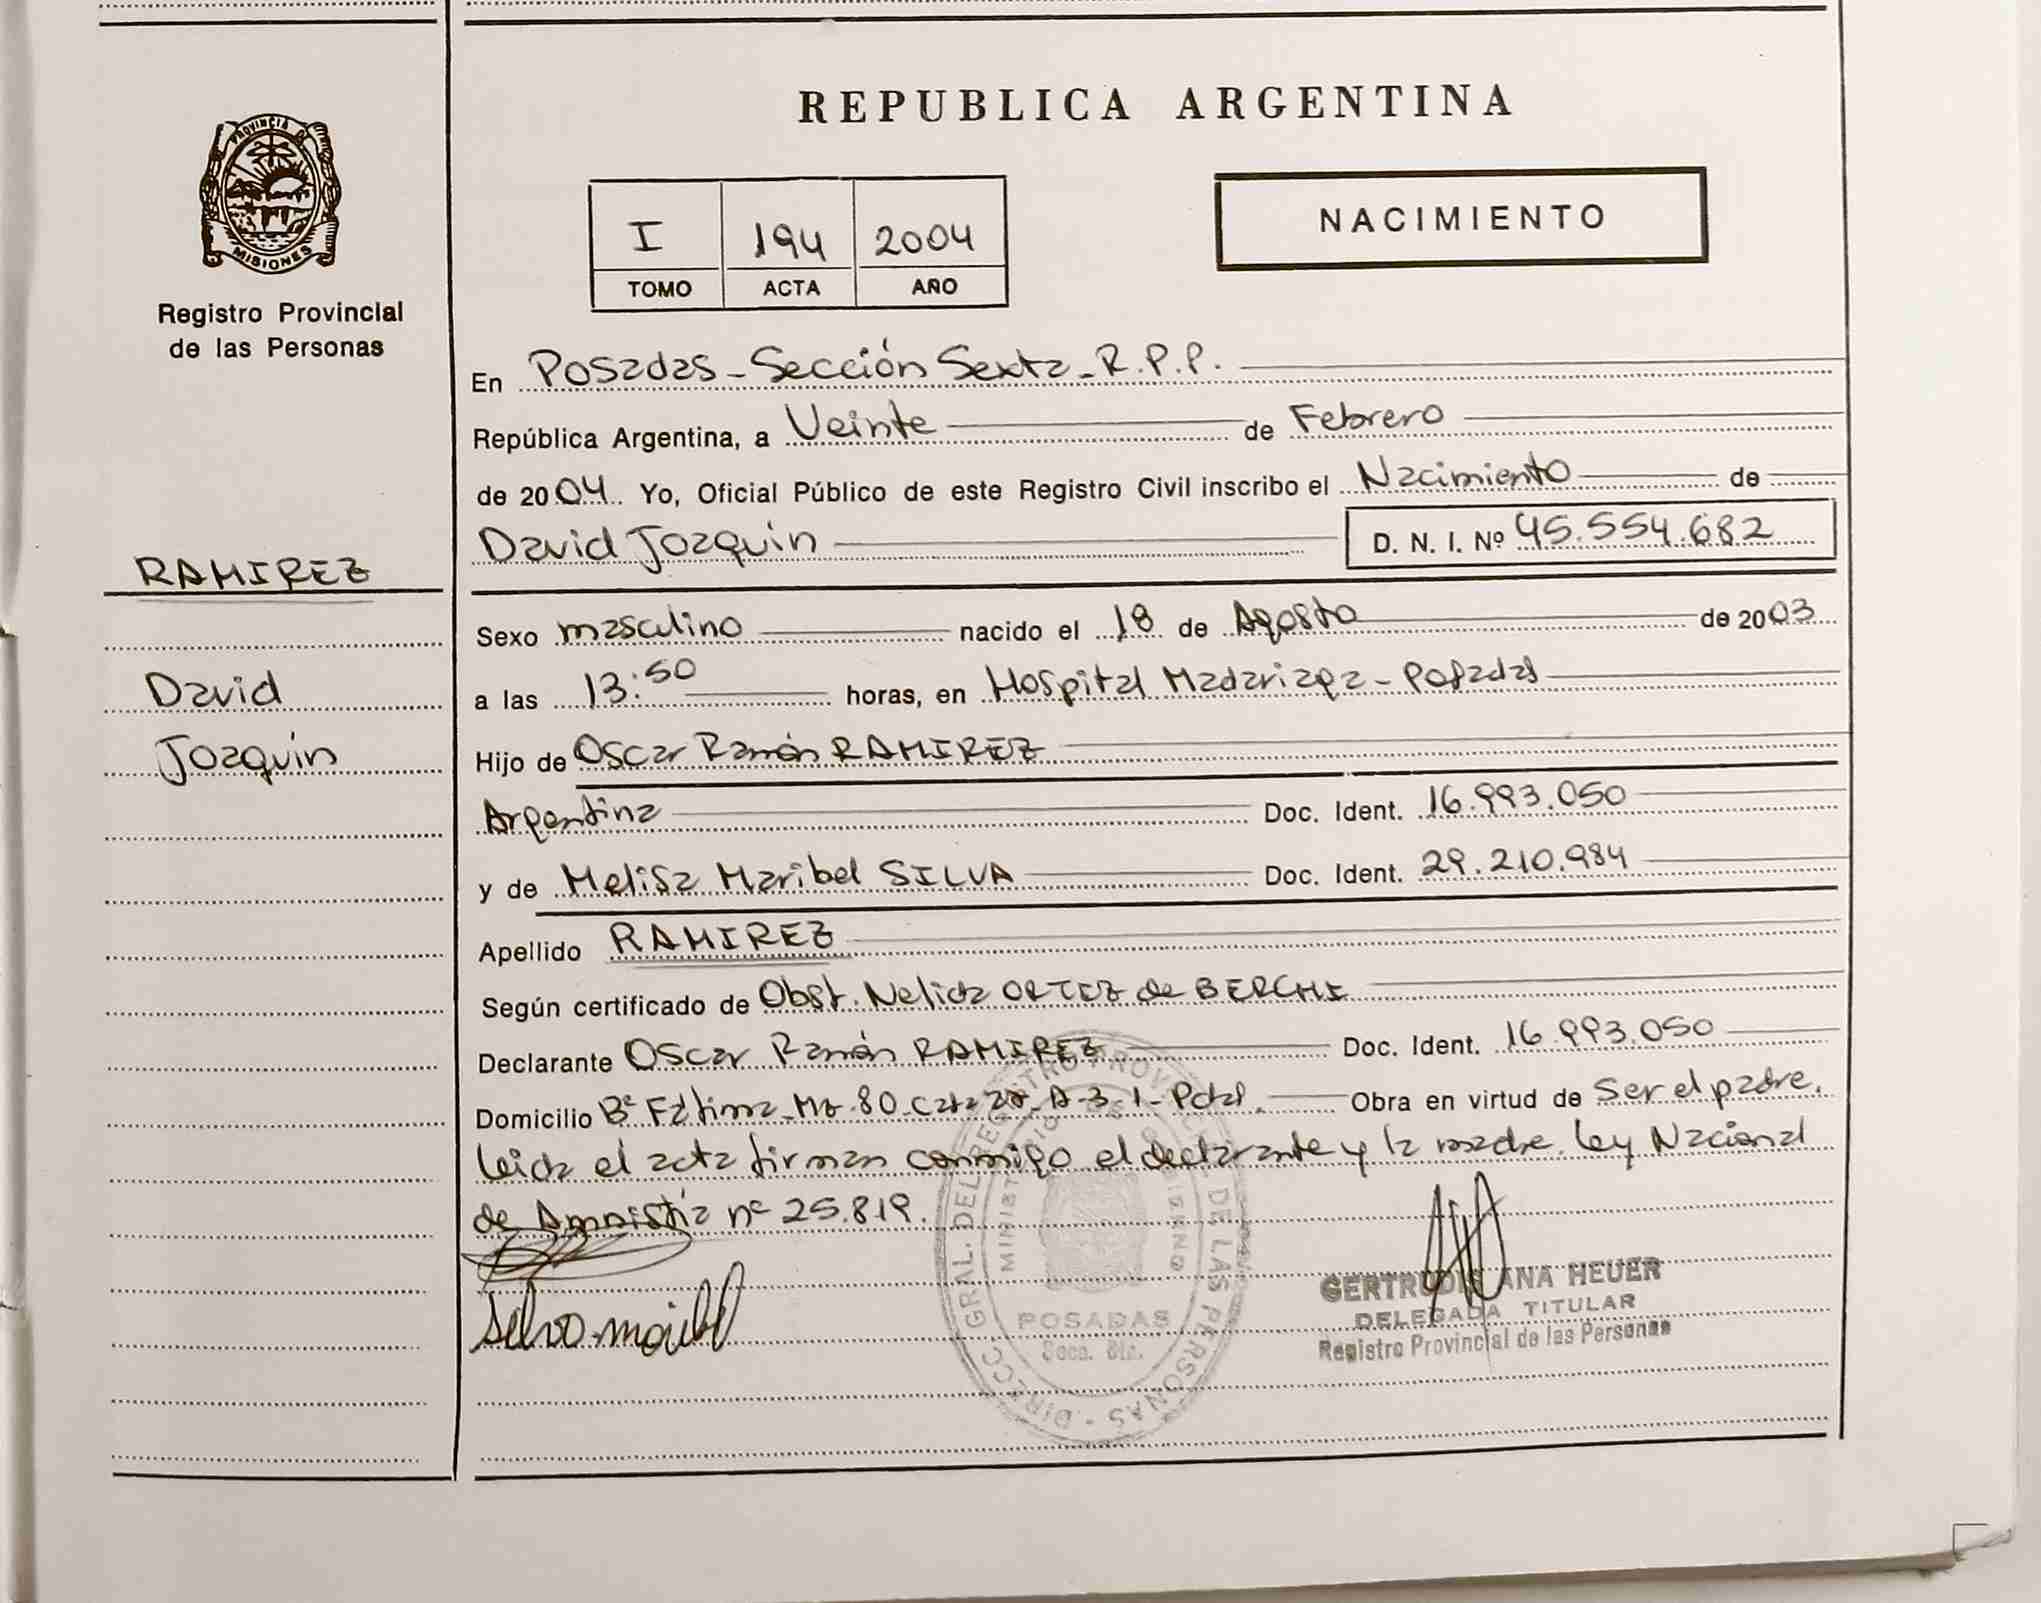 REPUBLICA ARGENTINA
PROVINCIA DE
MISIONES
Registro Provincial
de las Personas
I 194 2004
TOMO ACTA AÑO
NACIMIENTO
En Posadas - Sección Sexta - R.P.P.
República Argentina, a Veinte de Febrero
de 2004 Yo, Oficial Público de este Registro Civil inscribo el Nacimiento de
David Joaquín D. N. I. Nº 45.554.682
RAMIREZ
David
Joaquín
Sexo masculino nacido el 18 de Agosto de 2003
a las 13:50 horas, en Hospital Madariaga - Posadas
Hijo de Oscar Ramón RAMIREZ
Argentina Doc. Ident. 16.993.050
y de Melisa Maribel SILVA Doc. Ident. 29.210.984
Apellido RAMIREZ
Según certificado de Obst. Nelida ORTEZ de BERCHI
Declarante Oscar Ramón RAMIREZ Doc. Ident. 16.993.050
Domicilio Bº Fátima - Mz. 80 - A-3-1 - Obra en virtud de Ser el padre.
Leida el acta firman conmigo el declarante y la madre. Ley Nacional
de Amnistía nº 25.819.
Silva Maribel
DIRECC. GRAL. DEL REGISTRO PROVINC. DE LAS PERSONAS
MINISTERIO DE GOBIERNO
POSADAS
Secc. 6ta.
GERTRUDIS ANA HEUER
DELEGADA TITULAR
Registro Provincial de las Personas